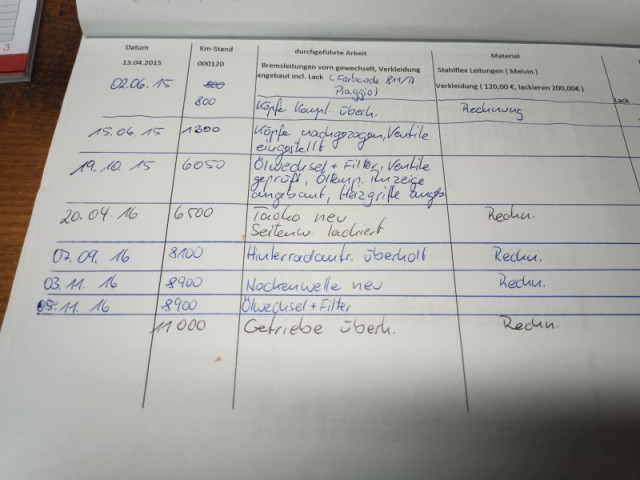 3
Datum Km-Stand durchgeführte Arbeit Material
13.04.2015 000120 Bremsleitungen vorn gewechselt, Verkleidung Stahlflex Leitungen ( Melvin )
angebaut incl. Lack (Farbcode Verkleidung ( 120,00 €, lackieren 200,00€ ) Lack
Piaggio)
02.06.15 800 Köpfe kompl. überh. Rechnung
15.06.15 1300 Köpfe nachgezogen, Ventile
eingestellt
19.10.15 6050 Ölwechsel + Filter, Ventile
geprüft, Öltemp. Anzeige
angebaut, Heizgriffe
20.04.16 6500 Tacho neu Rechn.
Seitenw. lackiert
07.09.16 8100 Hinterradantr. überholt Rechn.
03.11.16 8900 Nockenwelle neu Rechn.
05.11.16 8900 Ölwechsel + Filter
11000 Getriebe überh. Rechn.